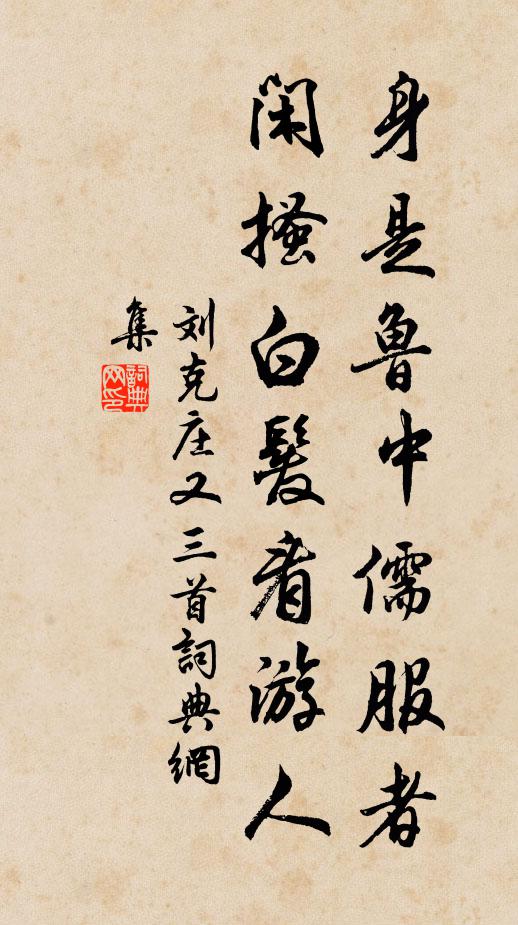 身是魯中儒服者
闲搔白髮看游人
刘克庄又三首詞典網
集
詞典網印